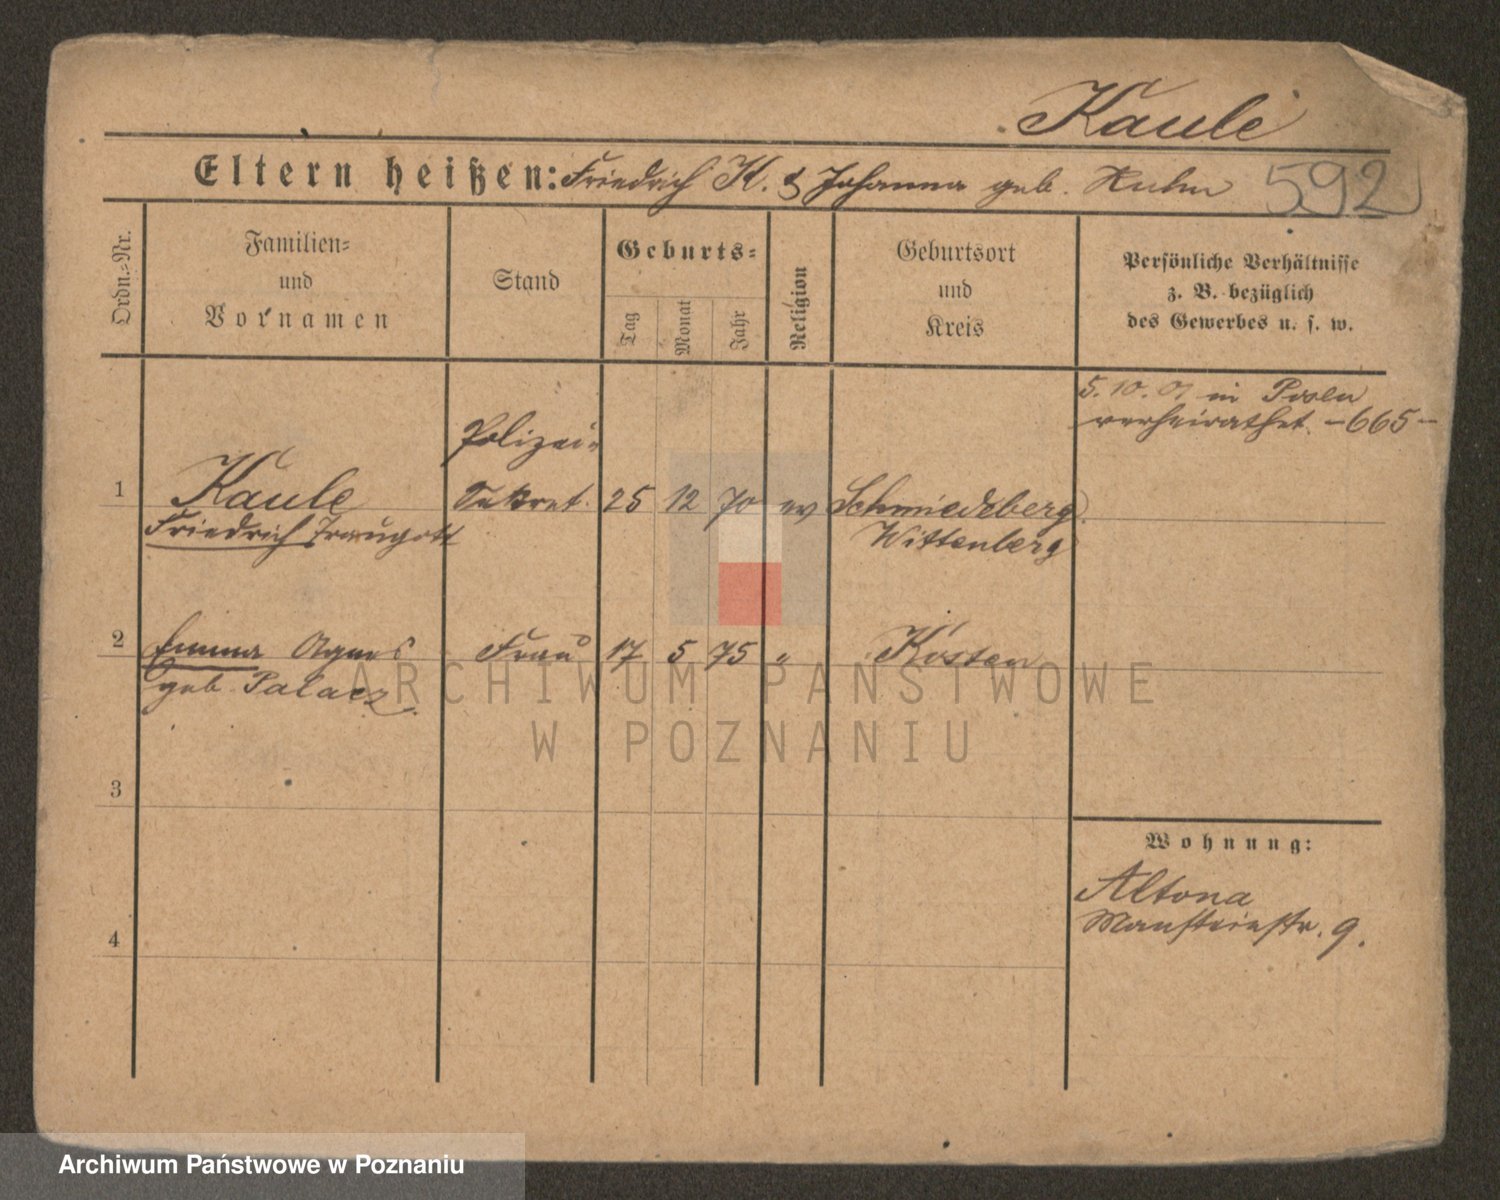 Kaule
Eltern heißen: Friedrich K. & Johanna geb. Huhn 592
Ordn.=Nr.
Familien=
und
Vornamen
Stand
Geburts=
Tag
Monat
Jahr
Religion
Geburtsort
und
Kreis
Persönliche Verhältnisse
z. B. bezüglich
des Gewerbes u. s. w.
5. 10. 01 in Posen
verheirathet. -665-
Polizei=
1 Kaule Sekret. 25 12 70 ev Schmiedeberg
Friedrich Traugott Wittenberg
2 Emma Agnes Frau 17 5 75 " Kosten
geb. Palacz
ARCHIWUM PAŃSTWOWE
W POZNANIU
3
Wohnung:
Altona
Mansteinstr. 9.
4
Archiwum Państwowe w Poznaniu